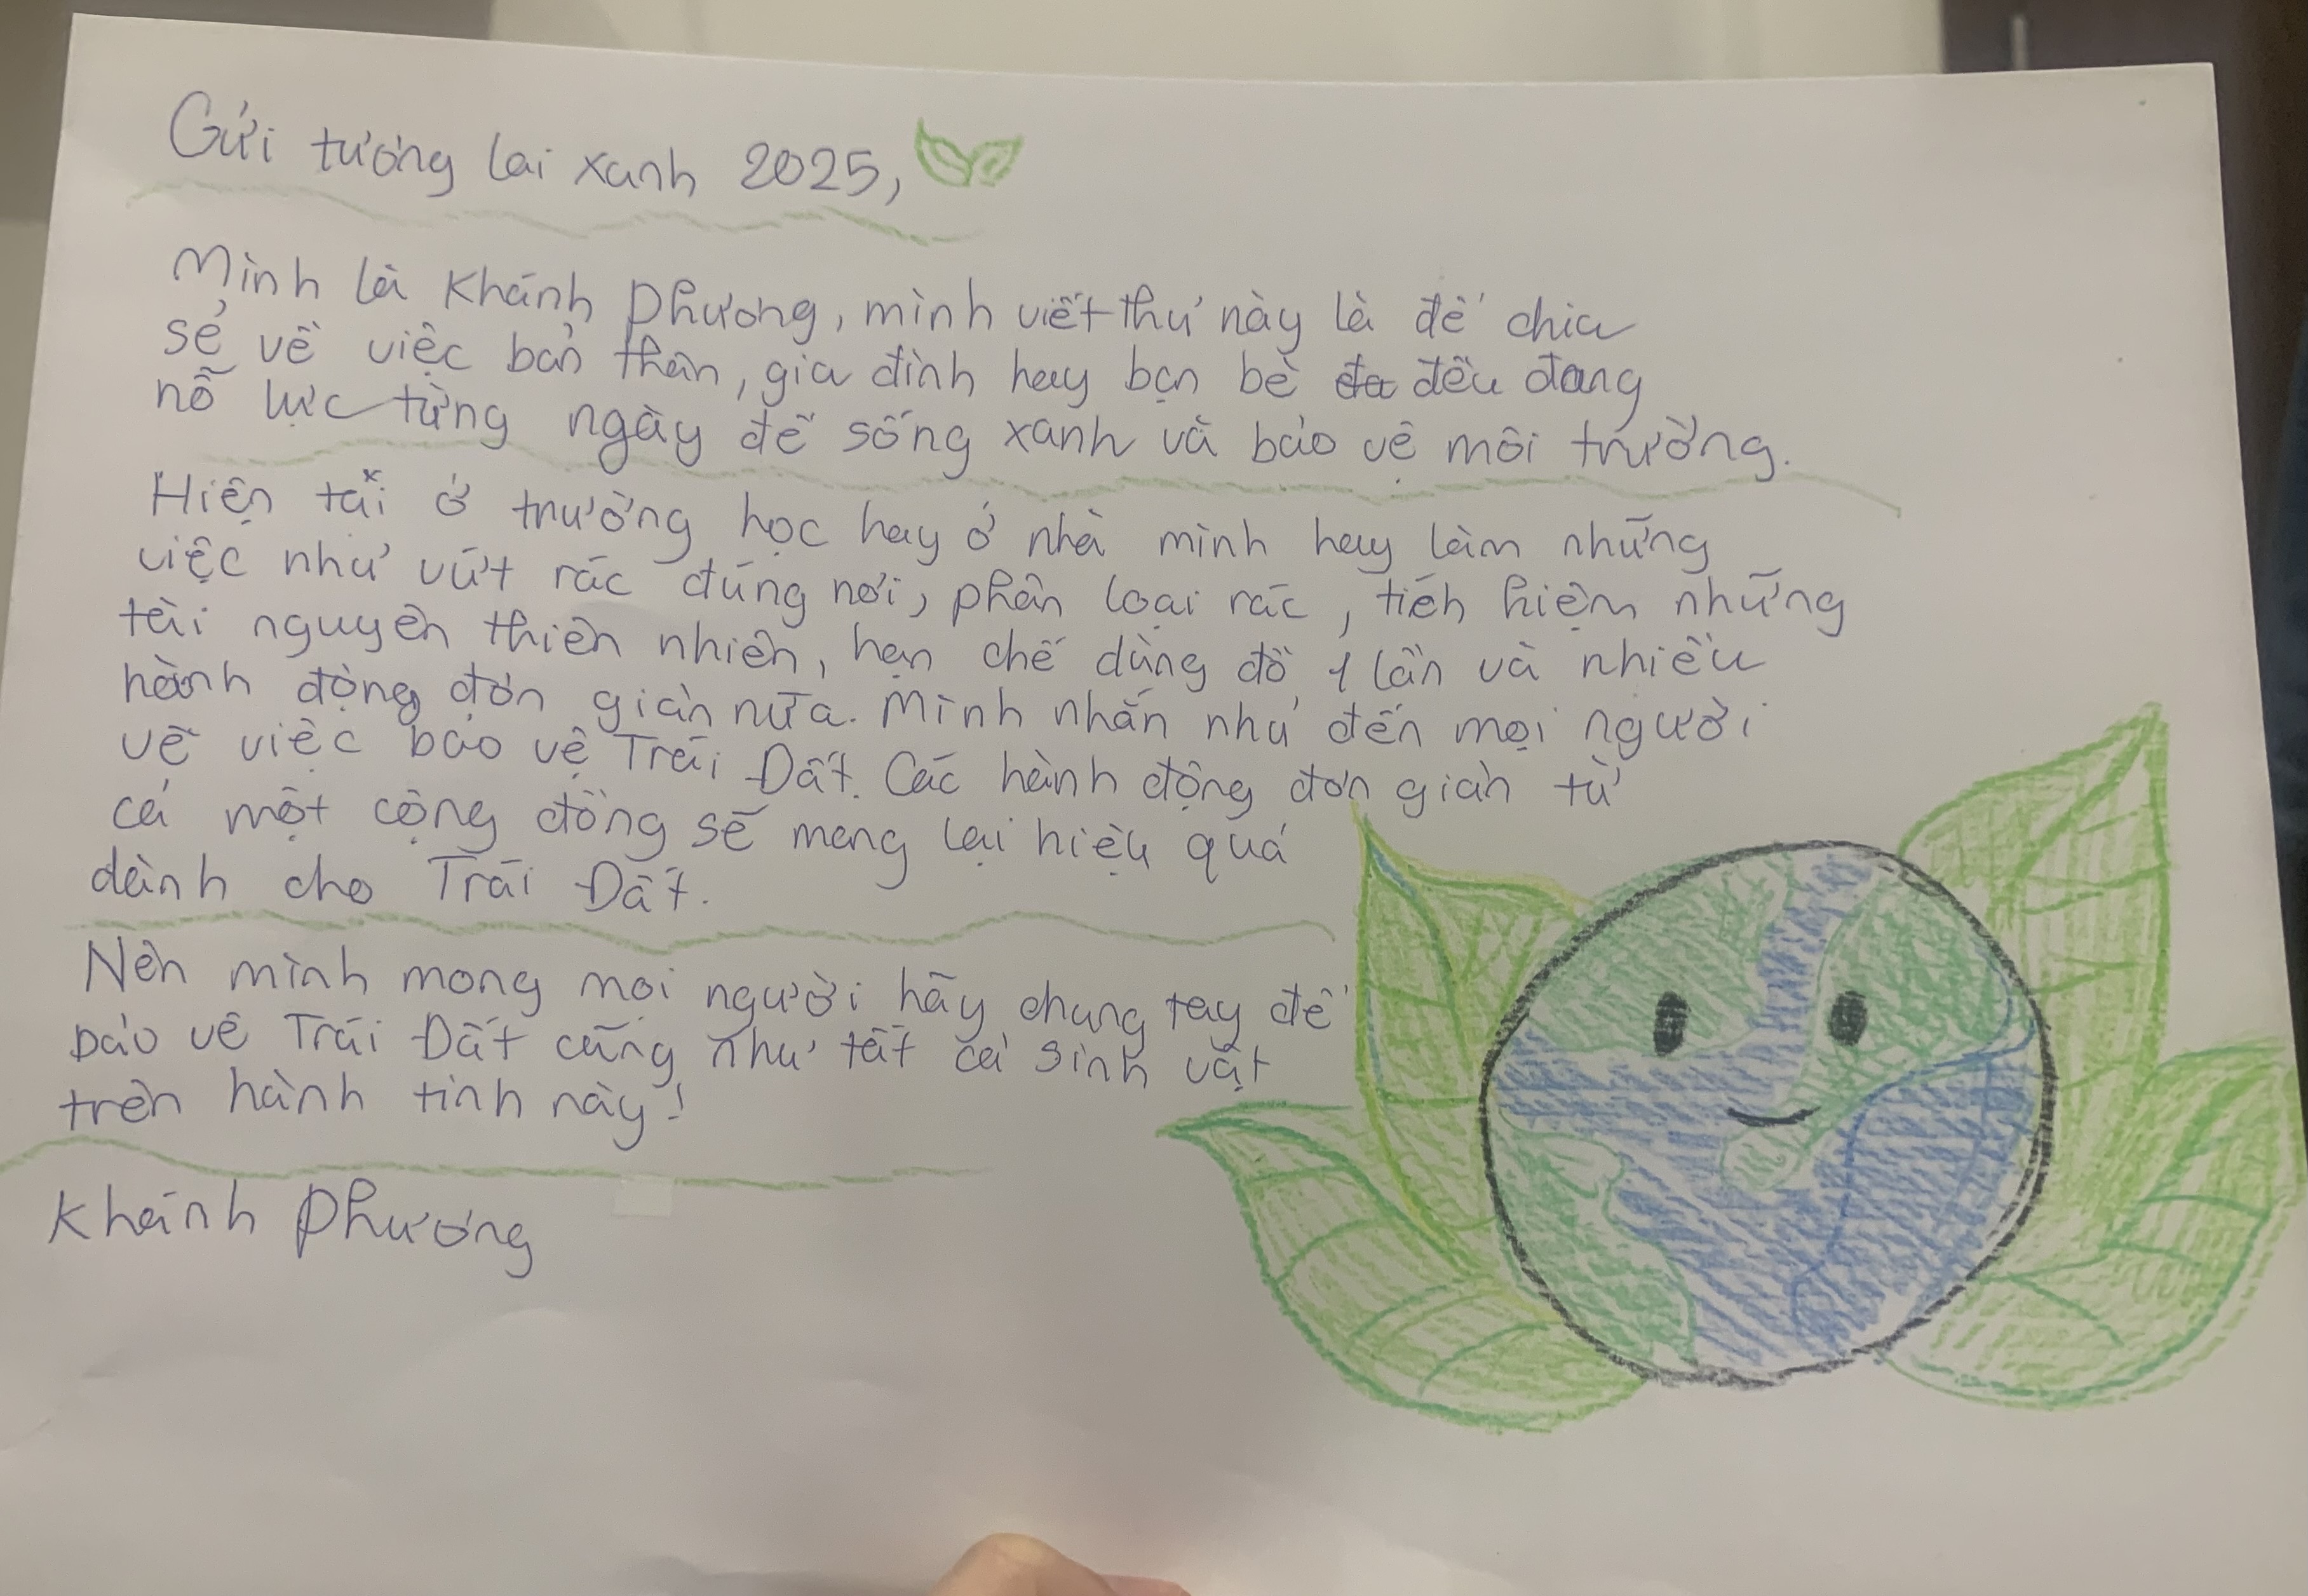 Gửi tương lai xanh 2025,
Mình là Khánh Phương, mình viết thư này là để chia
sẻ về việc bản thân, gia đình hay bạn bè đều đang
nỗ lực từng ngày để sống xanh và bảo vệ môi trường.
Hiện tại ở trường học hay ở nhà mình hay làm những
việc như vứt rác đúng nơi, phân loại rác, tiến hiệm những
tài nguyên thiên nhiên, hạn chế dùng đồ 1 lần và nhiều
hành động đơn giản nữa. Mình nhắn nhủ đến mọi người
về việc bảo vệ Trái Đất. Các hành động đơn giản từ
cả một cộng đồng sẽ mang lại hiệu quả
dành cho Trái Đất.
Nên mình mong mọi người hãy chung tay để
bảo vệ Trái Đất cũng như tất cả sinh vật
trên hành tinh này!
Khánh Phương